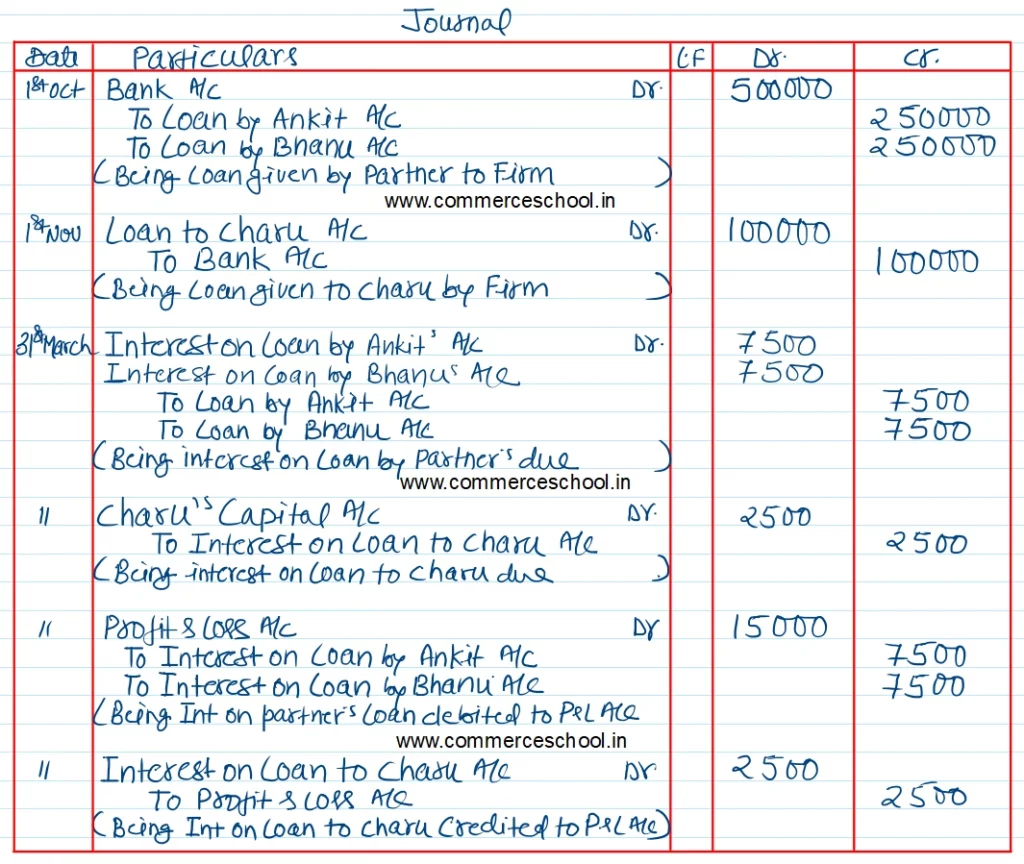 Journal
Date Particulars L.F Dr. Cr.
1st Oct Bank A/c Dr. 500000
To Loan by Ankit A/c 250000
To Loan by Bhanu A/c 250000
(Being Loan given by Partner to Firm )
www.commerceschool.in
1st Nov Loan to Charu A/c Dr. 100000
To Bank A/c 100000
(Being Loan given to Charu by Firm )
31st March Interest on Loan by Ankit's A/c Dr. 7500
Interest on Loan by Bhanu's A/c 7500
To Loan by Ankit A/c 7500
To Loan by Bhanu A/c 7500
(Being interest on Loan by Partner's due )
www.commerceschool.in
" Charu's Capital A/c Dr. 2500
To Interest on Loan to Charu A/c 2500
(Being interest on Loan to Charu due )
" Profit & Loss A/c Dr 15000
To Interest on Loan by Ankit A/c 7500
To Interest on Loan by Bhanu A/c 7500
(Being Int on partner's Loan debited to P&L A/c
www.commerceschool.in
" Interest on Loan to Charu A/c Dr. 2500
To Profit & Loss A/c 2500
(Being Int on Loan to Charu Credited to P&L A/c)